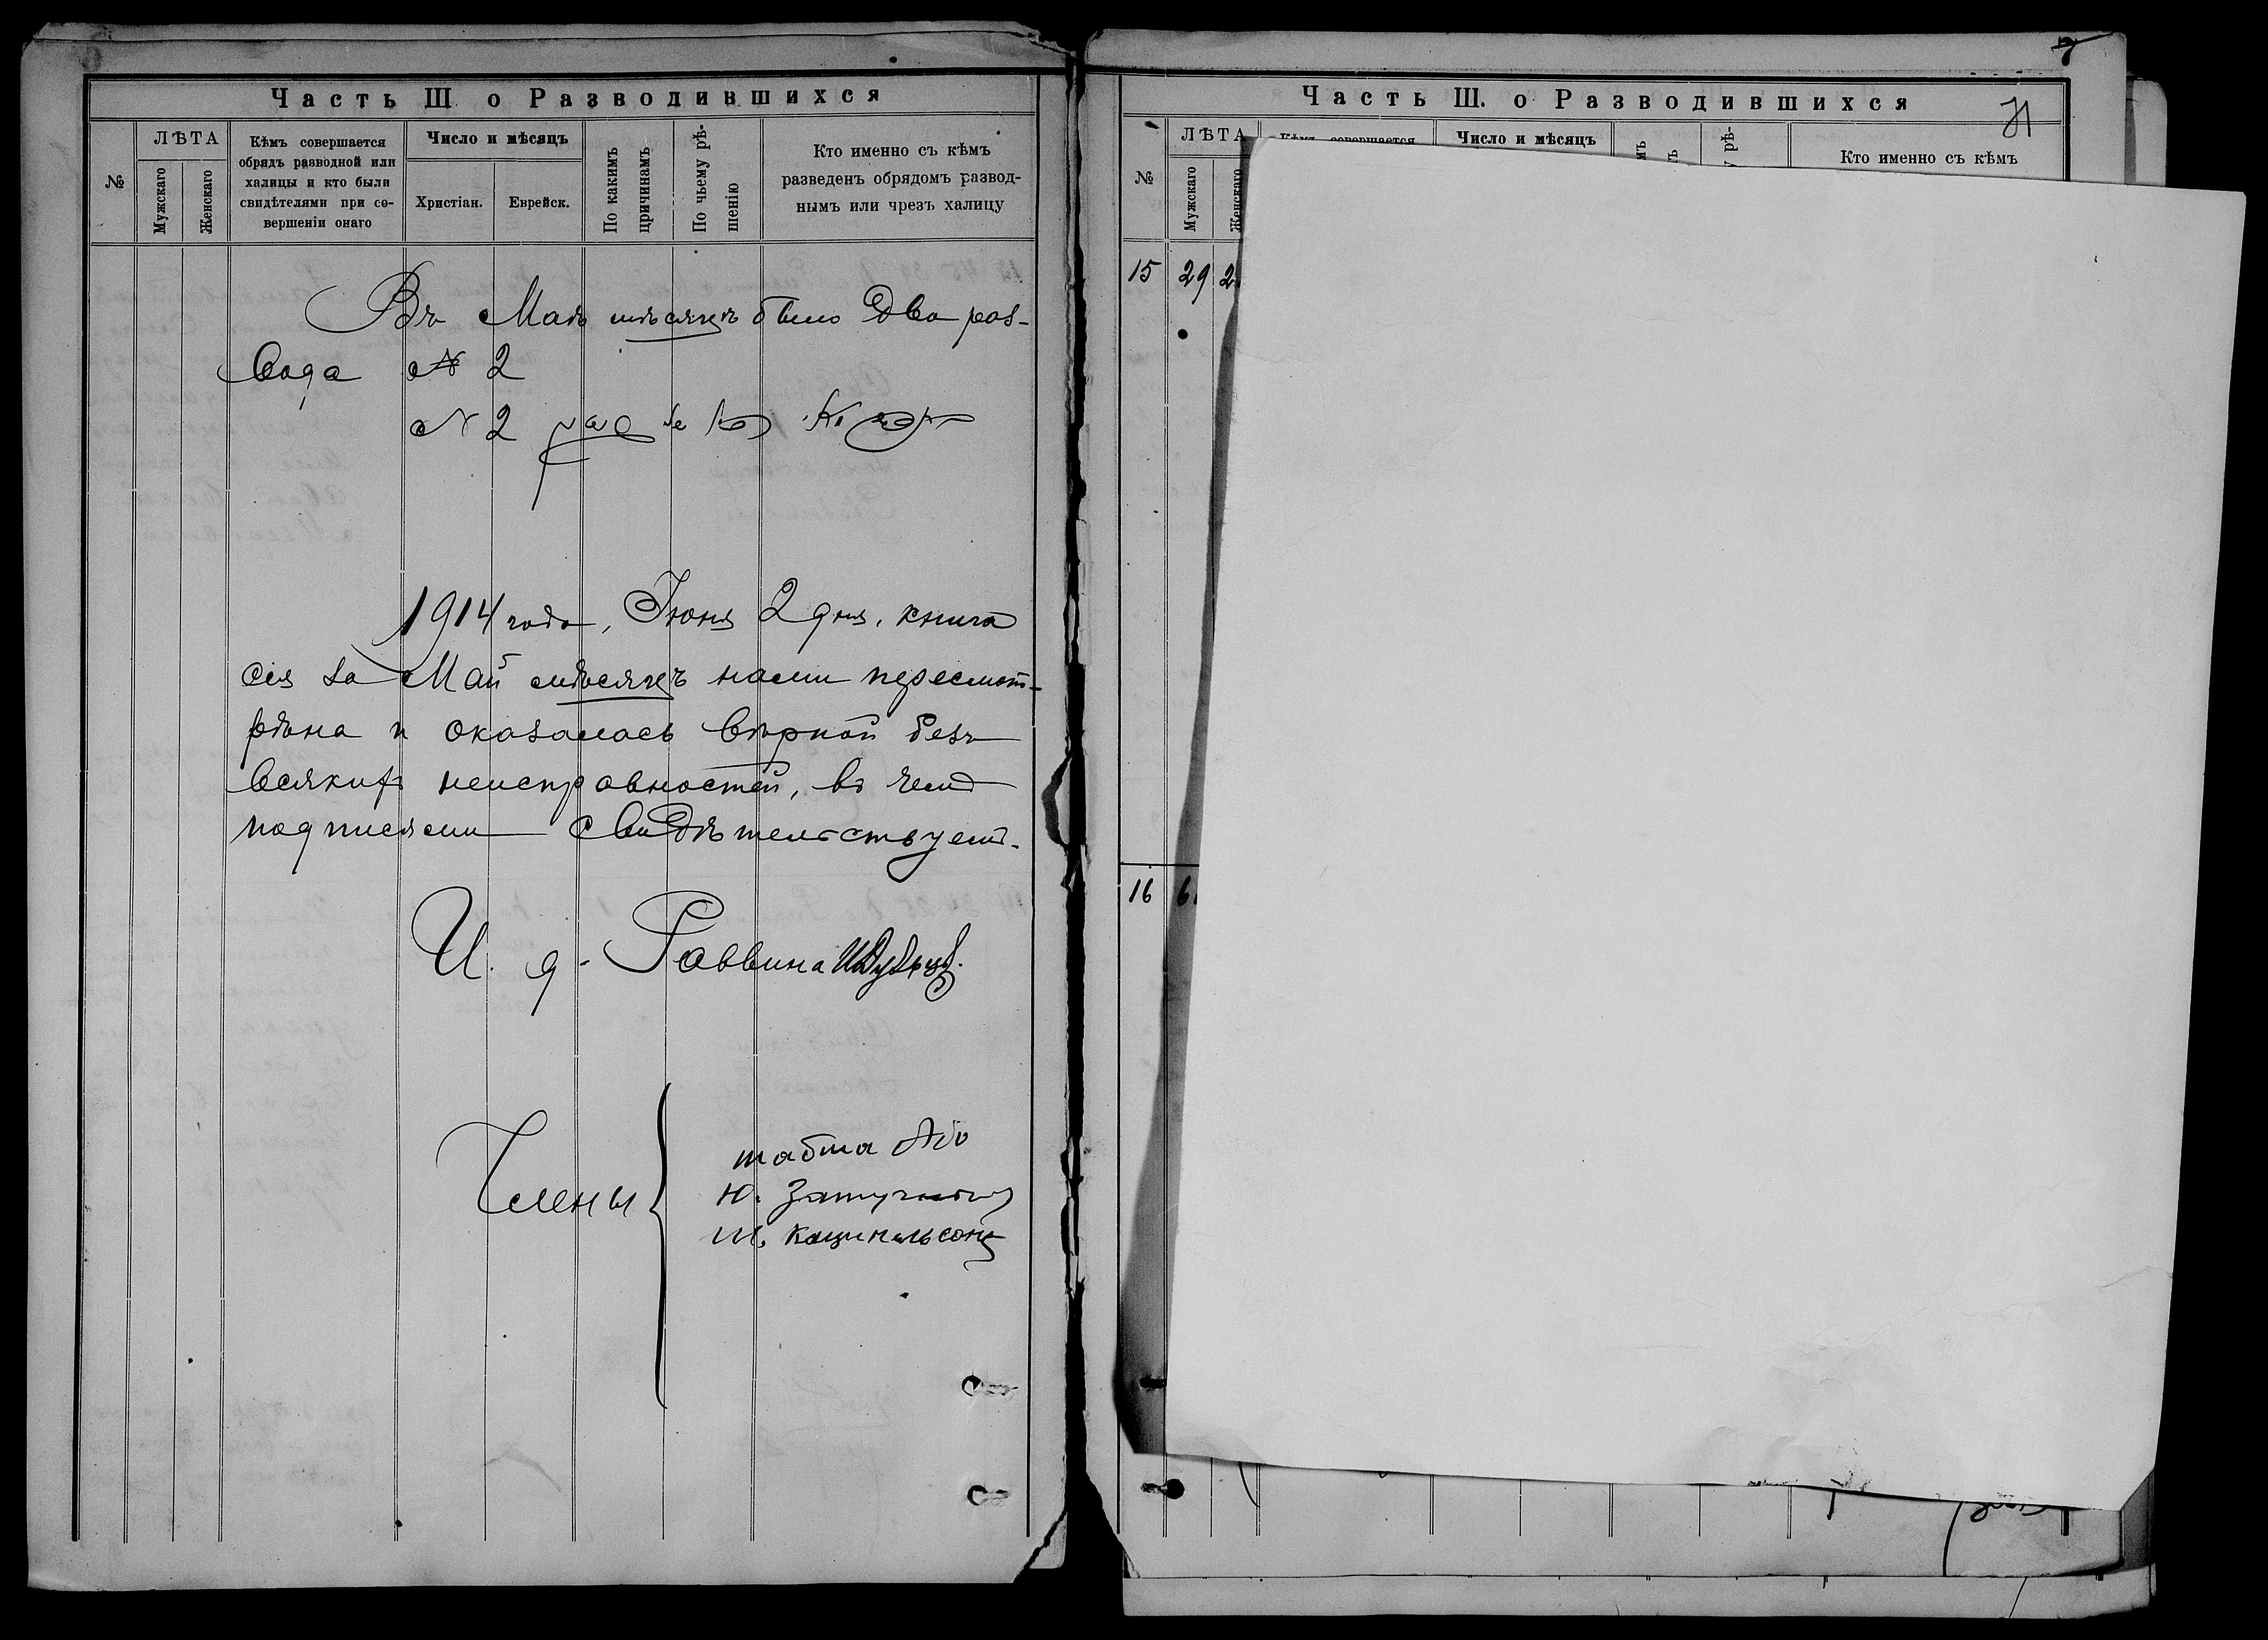 Часть III о Разводившихся
№
ЛѢТА
Мужскаго
Женскаго
Кѣмъ совершается
обрядъ разводной или
халицы и кто были
свидѣтелями при со-
вершеніи онаго
Число и мѣсяцъ
Христіан.
Еврейск.
По какимъ
причинамъ
По чьему рѣ-
шенію
Кто именно съ кѣмъ
разведенъ обрядомъ развод-
нымъ или чрезъ халицу
Въ Маѣ мѣсяцѣ было два раз-
вода № 2
№ 2
1914 года, Іюня 2 дня, книга
сія за Май мѣсяцъ нами пересмот-
рѣна и оказалась вѣрной безъ
всякихъ неисправностей, въ чемъ
подписями свидѣтельствуемъ.
И. д. Раввина
Члены
Ю.
Ш. Кацнельсонъ
Часть III. о Разводившихся
№
ЛѢТА
Мужскаго
Женскаго
Кѣмъ совершается
Число и мѣсяцъ
рѣ-
Кто именно съ кѣмъ
15 29 2
16 6